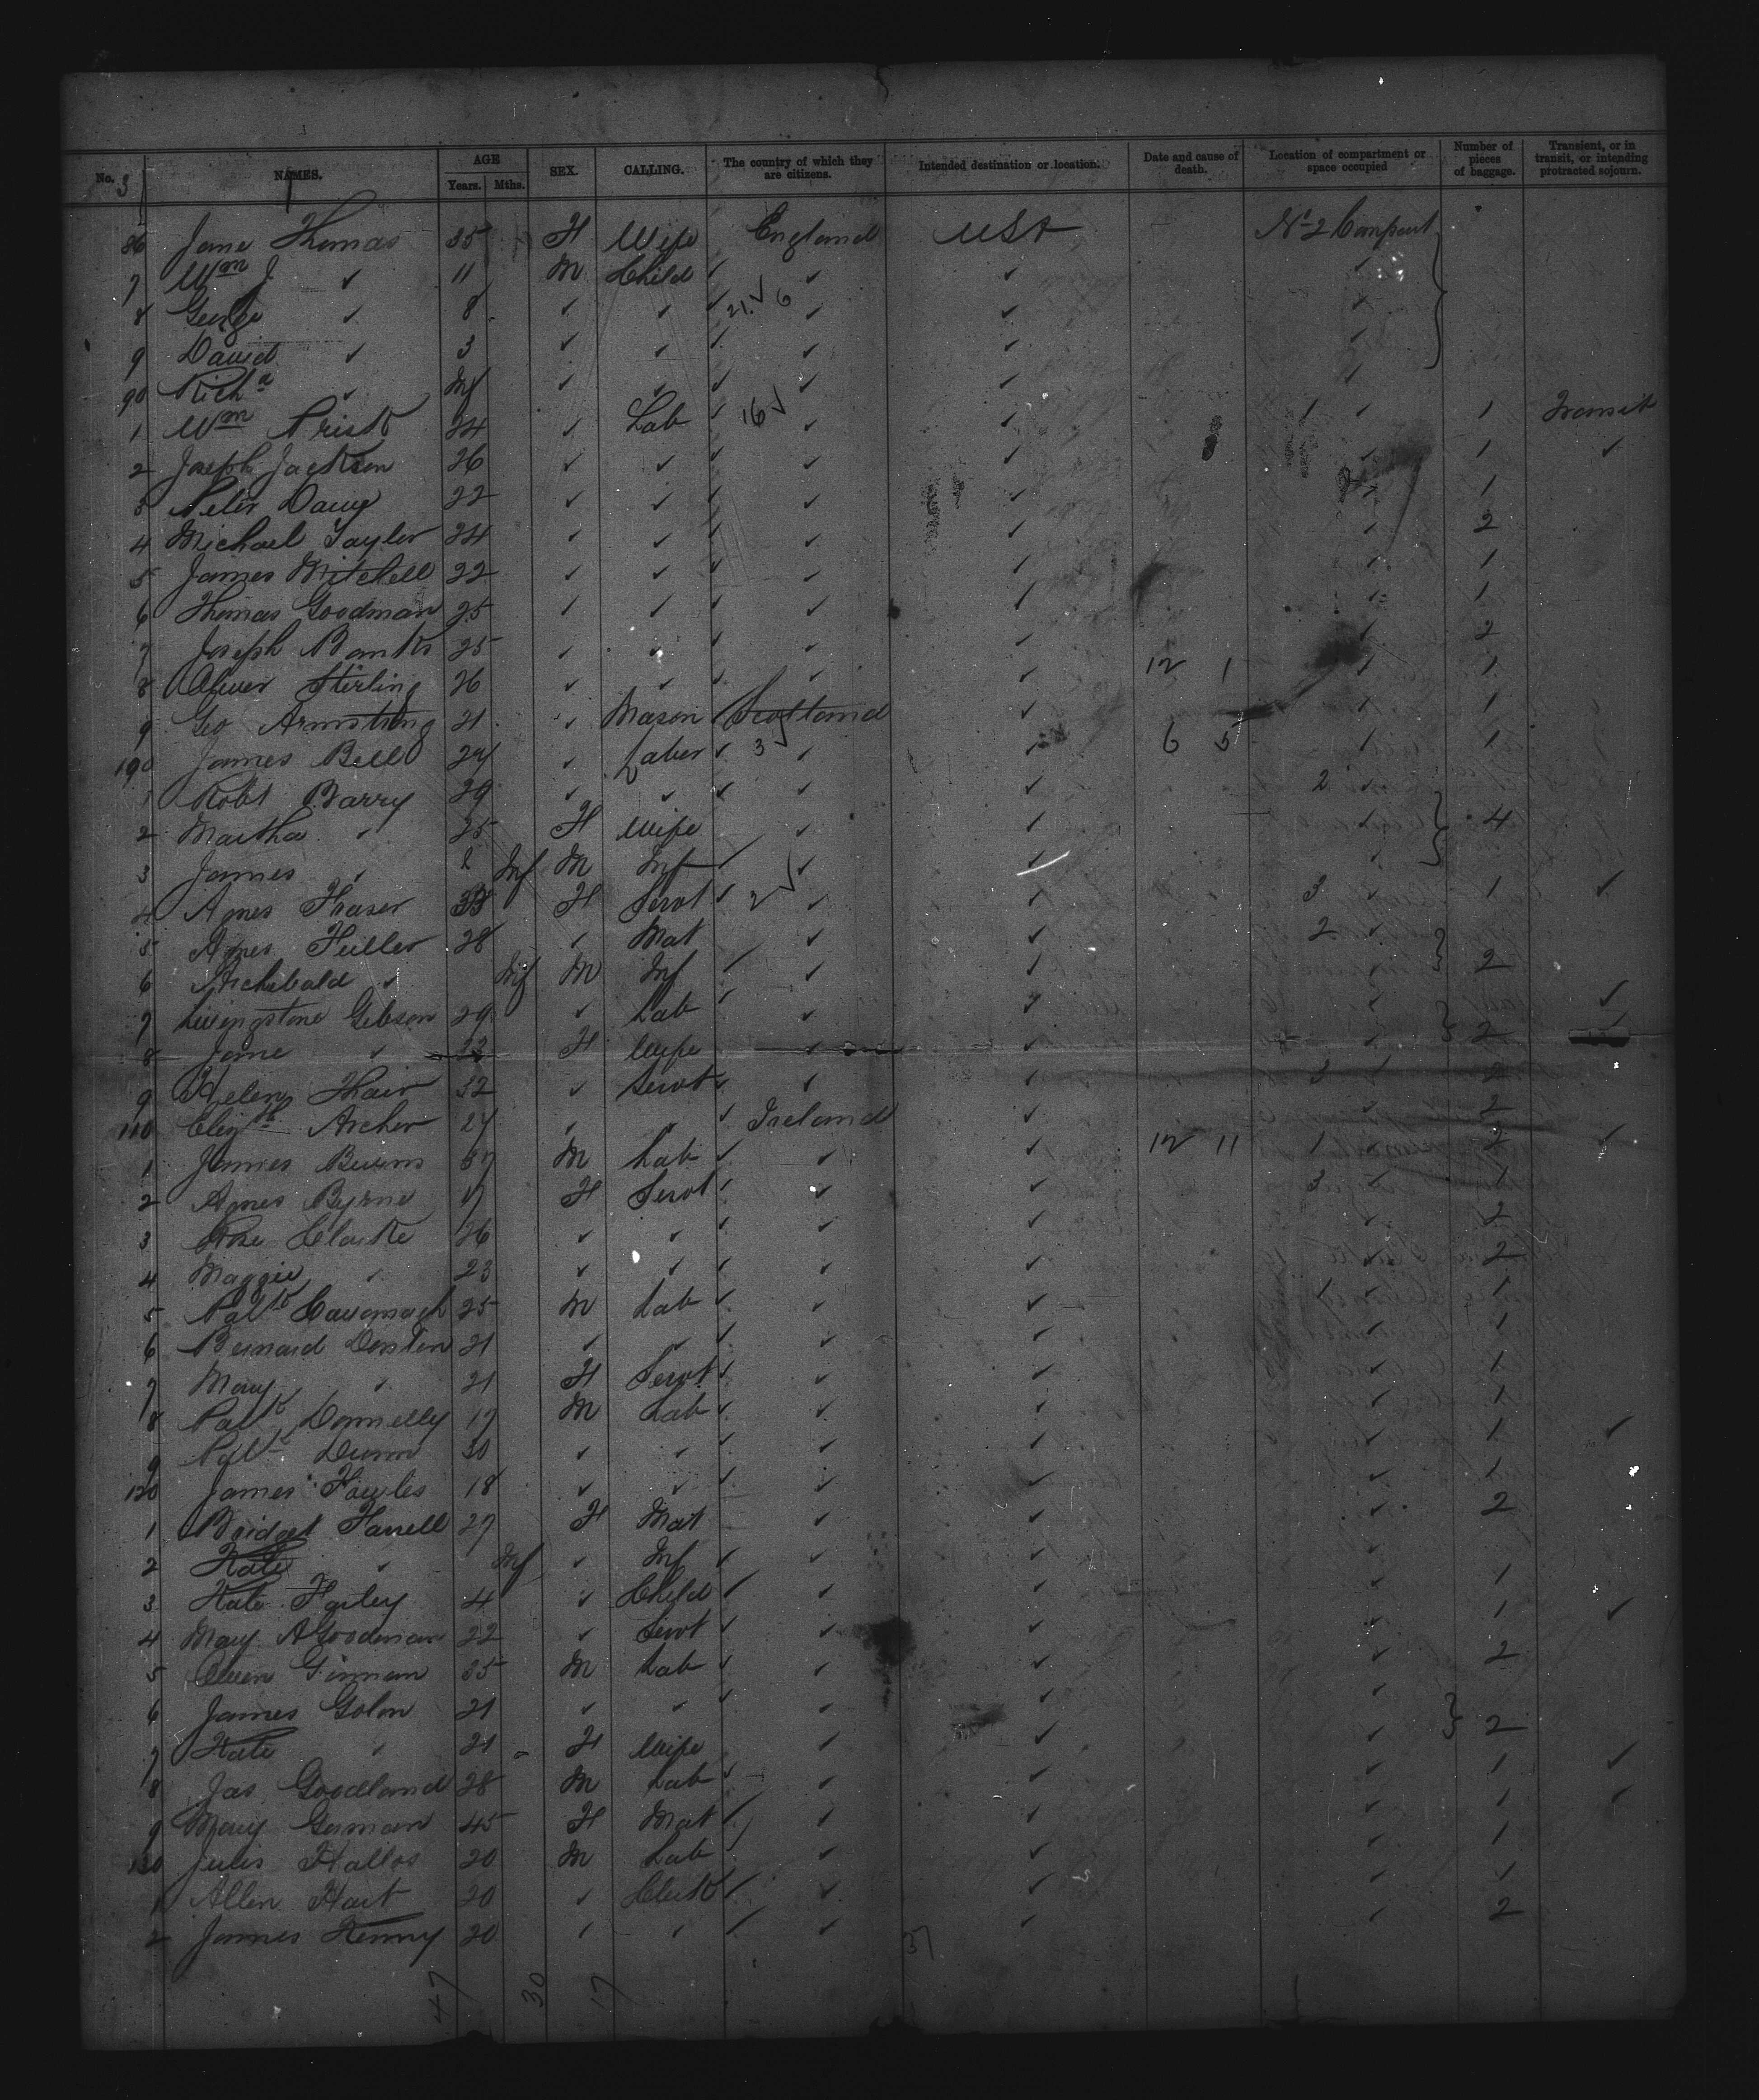 No. NAMES. AGE Years. Mths. SEX. CALLING. The country of which they are citizens. Intended destination or location. Date and cause of death. Location of compartment or space occupied Number of pieces of baggage. Transient, or in transit, or intending protracted sojourn.
3
86 Jane Thomas 35 F Wife England USA No 2 Compart
7 Wm J ✓ 11 M Child ✓ ✓ ✓ ✓
8 George ✓ 8 ✓ ✓ ✓ 21 ✓ 6 ✓ ✓ ✓
9 David ✓ 3 ✓ ✓ ✓ ✓ ✓ ✓
90 Richd ✓ Inf ✓ ✓ ✓ ✓ ✓ ✓
1 Wm Prisk 24 ✓ Lab ✓ 16 ✓ ✓ ✓ 1 ✓ 1 Transit
2 Joseph Jackson 26 ✓ ✓ ✓ ✓ ✓ ✓ 1 ✓
3 Peter Davey 22 ✓ ✓ ✓ ✓ ✓ ✓ 1
4 Michael Taylor 24 ✓ ✓ ✓ ✓ ✓ ✓ 2
5 James Mitchell 22 ✓ ✓ ✓ ✓ ✓ ✓ 1
6 Thomas Goodman 25 ✓ ✓ ✓ ✓ ✓ ✓ 1
7 Joseph Banks 25 ✓ ✓ ✓ ✓ ✓ ✓ 2
8 Oliver Stirling 26 ✓ ✓ ✓ ✓ ✓ 12 1 ✓ 1
9 Geo Armstrong 21 ✓ Mason Scotland ✓ ✓ 1
190 James Bell 24 ✓ Laber ✓ 3 ✓ ✓ ✓ 6 5 ✓ 1
1 Robt Barry 29 ✓ ✓ ✓ ✓ ✓ 2 ✓
2 Martha ✓ 25 F Wife ✓ ✓ ✓ 4
3 James ✓ Inf M Inf ✓ ✓ ✓ ✓
4 Agnes Fraser 33 F Servt ✓ 2 ✓ ✓ ✓ 3 ✓ 1 ✓
5 Agnes Fuller 28 ✓ Mat ✓ ✓ 2 ✓
6 Archibald ✓ Inf M Inf ✓ ✓ ✓ ✓ 2
7 Livingstone Gibson 29 ✓ Lab ✓ ✓ ✓ ✓ ✓
8 Jane ✓ 23 F Wife ✓ ✓ ✓ 2 ✓
9 Helen Thair 32 ✓ Servt ✓ ✓ ✓ 3 ✓ 2
110 Elizth Archer 27 ✓ ✓ ✓ Ireland ✓ ✓ 2
1 James Burns 37 M Lab ✓ ✓ ✓ 12 11 1 ✓ 2 ✓
2 Agnes Byrne 17 F Servt ✓ ✓ ✓ 3 ✓ 1
3 Rose Clarke 26 ✓ ✓ ✓ ✓ ✓ ✓ 2
4 Maggie ✓ 23 ✓ ✓ ✓ ✓ ✓ ✓ 2
5 Patk Cavanagh 25 M Lab ✓ ✓ ✓ 1 ✓ 1
6 Bernard 21 ✓ ✓ ✓ ✓ ✓ ✓ 1
7 Mary ✓ 21 F Servt ✓ ✓ ✓ ✓ 1
8 Patk Donnelly 17 M Lab ✓ ✓ ✓ ✓ 1
9 Patk Dunn 30 ✓ ✓ ✓ ✓ ✓ ✓ 1 ✓
120 James Fowles 18 ✓ ✓ ✓ ✓ ✓ ✓ 1
1 Bridget Farrell 27 F Mat ✓ ✓ ✓ 2
2 Kate ✓ Inf ✓ Inf ✓ ✓ ✓ ✓
3 Kate Farley 4 ✓ Child ✓ ✓ ✓ ✓ 1
4 Mary A Goodman 22 ✓ Servt ✓ ✓ ✓ ✓ 1 ✓
5 Owen Ginnan 35 M Lab ✓ ✓ ✓ ✓ 2
6 James Golon 21 ✓ ✓ ✓ ✓ ✓ ✓
7 Kate ✓ 21 F Wife ✓ ✓ ✓ 2
8 Jas Goodland 28 M Lab ✓ ✓ ✓ ✓ 1 ✓
9 Mary Gorman 45 F Mat ✓ ✓ ✓ ✓ 1 ✓
130 Jules Hallos 20 M Lab ✓ ✓ ✓ ✓ 1
1 Allen Hart 20 ✓ Clerk ✓ ✓ ✓ ✓ 1
2 James Kenny 20 ✓ ✓ ✓ ✓ ✓ ✓ 2
47 30 17 37